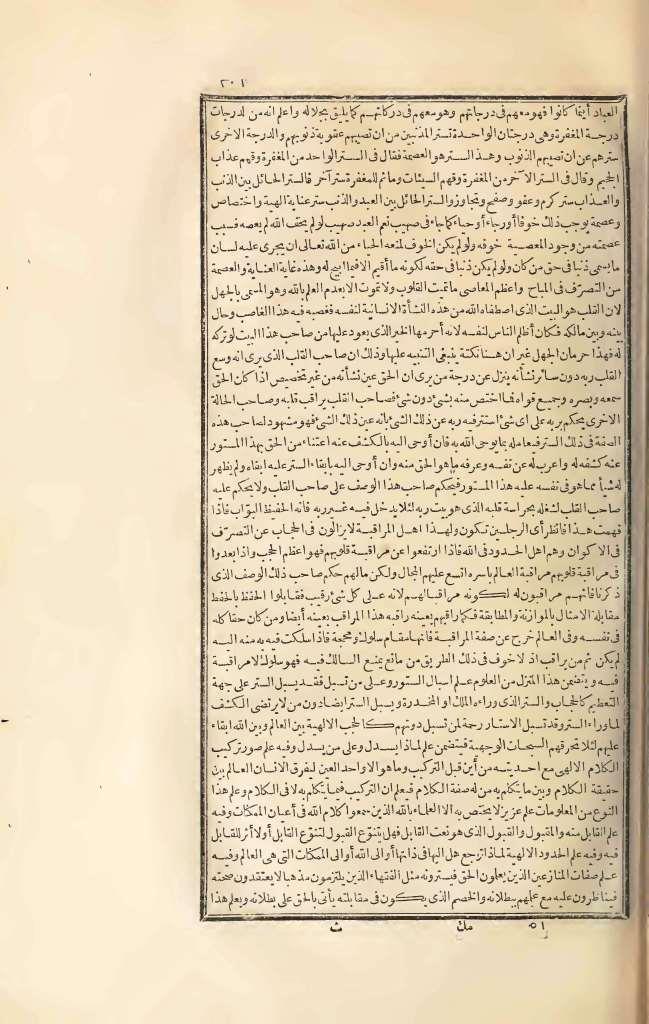 ٢٠١
العباد أينما كانوا فهو معهم فى درجاتهم وهو معهم فى دركاتهم كما يليق بجلاله واعلم انه من لدرجات
درجة المغفرة وهى درجتان الواحدة ستر المذنبين من ان تصيبهم عقوبة ذنوبهم والدرجة الاخرى
سترهم عن ان تصيبهم الذنوب وهذا الستر هو العصمة فقال فى الستر الواحد من المغفرة وقهم عذاب
الجحيم وقال فى الستر الآخر من المغفرة وقهم السيئات وما ثم للمغفرة ستر آخر فالستر الحائل بين الذنب
والعذاب ستر كرم وعفو وصفح وتجاوز والستر الحائل بين العبد والذنب ستر عناية الهية واختصاص
وعصمة يوجب ذلك خوفا أو رجاء أو حياء كما جاء فى صهيب نعم العبد صهيب لو لم يخف الله لم يعصه فسبب
عصمته من وجود المعصية خوفه ولو لم يكن الخوف لمنعه الحياء من الله تعالى ان يجرى عليه لسان
ما يسمى ذنبا فى حق من كان ولو لم يكن ذنبا فى حقه لكونه ما أقيم الا فيما أبيح له وهذه غاية العناية والعصمة
من التصرف فى المباح واعظم المعاصى ما يميت القلوب ولا تموت الا بعدم العلم بالله وهو المسمى بالجهل
لان القلب هو البيت الذى اصطفاه الله من هذه النشأة الانسانية لنفسه فغصبه فيه هذا الغاصب وحال
بينه وبين مالكه فكان أظلم الناس لنفسه لانه أحرمها الخير الذى يعود عليها من صاحب هذا البيت لو تركه
له فهذا حرمان الجهل غير ان هنا نكتة ينبغى التنبيه عليها وذلك ان صاحب القلب الذى يرى انه وسع
القلب ربه دون سائر نشأته ينزل عن درجة من يرى ان الحق عين نشأته من غير تخصيص اذا كان الحق
سمعه وبصره وجميع قواه فما اختص منه بشئ دون شئ فصاحب القلب يراقب قلبه وصاحب الحالة
الاخرى يحكم بربه على اى شئ استتر فيه ربه عن ذلك الشئ بانه عين ذلك الشئ فهو مشهود لصاحب هذه
الصفة فى ذلك الستر فيعامله بما يوحى الله به فان أوحى اليه بالكشف عنه اعتناء من الحق بهذا المستور
عنه كشفه له واعرب له عن نفسه وعرفه ما هو الحق منه وان أوحى اليه بابقاء الستر عليه ابقاه ولم يظهر
له شيأ مما هو فى نفسه عليه هذا المستور فيحكم صاحب هذا الوصف على صاحب القلب ولا يحكم عليه
صاحب القلب لشغله بحراسة قلبه الذى هو بيت ربه لئلا يدخل فيه غير ربه فانه الحفيظ البواب فاذا
فهمت هذا فانظر أى الرجلين تكون ولهذا اهل المراقبة لا يزالون فى الحجاب عن التصرف
فى الاكوان وهم اهل الحدود فى الله فاذا ارتفعوا عن مراقبة قلوبهم فهو اعظم الحجب واذا بعدوا
فى مراقبة قلوبهم مراقبة العالم باسره اتسع عليهم المجال ولكن مالهم حكم صاحب ذلك الوصف الذى
ذكرناه فانهم مراقبون له لكونه مراقبا لهم لانه على كل شئ رقيب فقابلوا الحفظ بالحفظ
مقابلة الامثال بالموازنة والمطابقة فكما راقبهم بعينه راقبه هذا المراقب بعينه أيضا ومن كان حقا كله
فى نفسه وفى العالم خرج عن صفة المراقبة فانها مقام سلوك ومحجة فاذا سلكت فيه به منه اليه
لم يكن ثم من يراقب اذ لا خوف فى ذلك الطريق من مانع يمنع السالك فيه فهو سلوك لا مراقبة
فيه ويتضمن هذا المنزل من العلوم علم اسبال الستور وعلى من تسبل فقد يسبل الستر على جهة
التعظيم كالحجاب والستر الذى وراءه الملك او المخدرة ويسبل الستر ايضا دون من لا يرتضى الكشف
لما وراء الستر وقد تسبل الاستار رحمة لمن تسبل دونهم كالحجب الالهية بين العالم وبين الله ابقاء
عليهم لئلا تحرقهم السبحات الوجهية فيتضمن علم لماذا يسدل وعلى من يسدل وفيه علم صور تركيب
الكلام الالهى مع احديته من أين قبل التركيب وما هو الا واحد العين ليفرق الانسان العالم بين
حقيقة الكلام وبين ما يتكلم به من له صفة الكلام فيعلم ان التركيب فيما يتكلم به لا فى الكلام وعلم هذا
النوع من المعلومات علم عزيز لا يختص به الا العلماء بالله الذين سمعوا كلام الله فى أعيان الممكنات وفيه
علم القابل منه والمقبول والقبول الذى هو نعت القابل فهل يتنوع القبول لتنوع القابل أو لا أثر للقابل
فيه وفيه علم الحدود الالهية لماذا ترجع هل اليها فى ذاتها أو الى الله أو الى الممكنات التى هى العالم وفيه
علم صفات المنازعين الذين يعلمون الحق فيسترونه مثل الفقهاء الذين يلتزمون مذهبا لا يعتقدون صحته
فيناظرون عليه مع علمهم ببطلانه والخصم الذى يكون فى مقابلته يأتى بالحق على بطلانه ويعلم هذا
٥١ مك ث